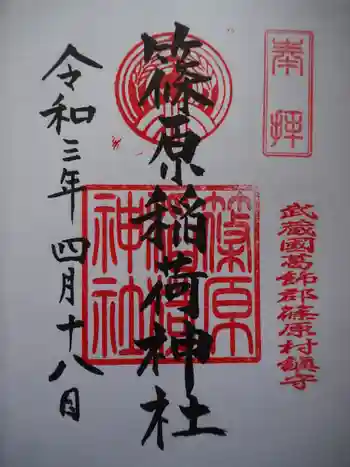 奉拝
武蔵國葛飾郡篠原村鎮守
篠原稲荷神社
篠原
稲荷
神社
令和三年 四月十八日